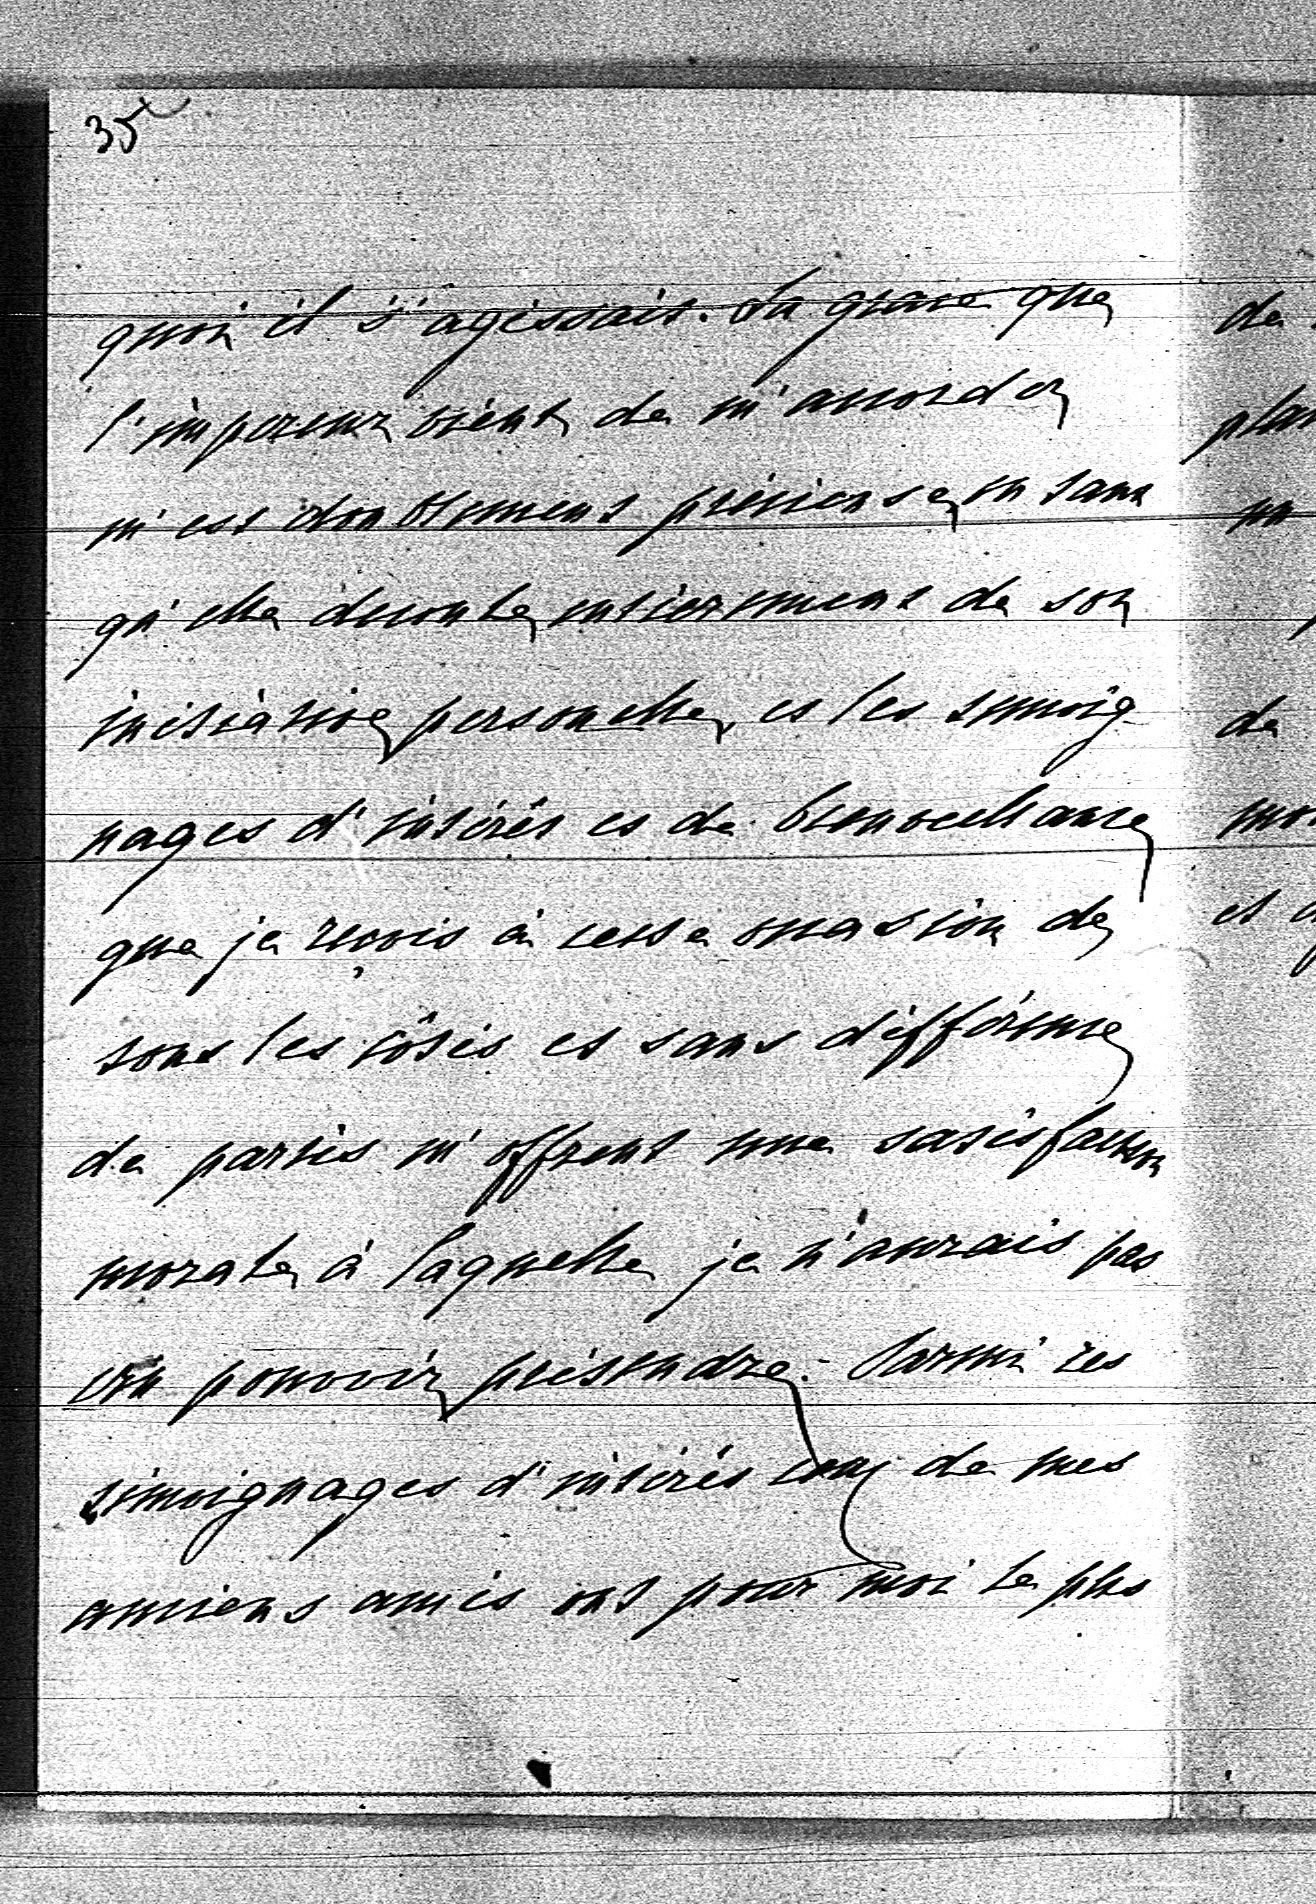 35
quoi il s'agissait. La grace que
l'impereur vient de m'accorder
m'est doublement précieuse en sans
qu'elle découle entièrement de son
initiative personelle, et les témoig-
nages d'intérêt et de bienveillance
que je reçois à cette occasion de
tous les côtés et sans différence
de partis m'offrent une satisfaction
morale à laquelle je n'aurais pas
cru pouvoir prétendre. Parmi ces
témoignages d'intérêt ceux de mes
anciens amis ont pour moi le plus
de
plan
de
et